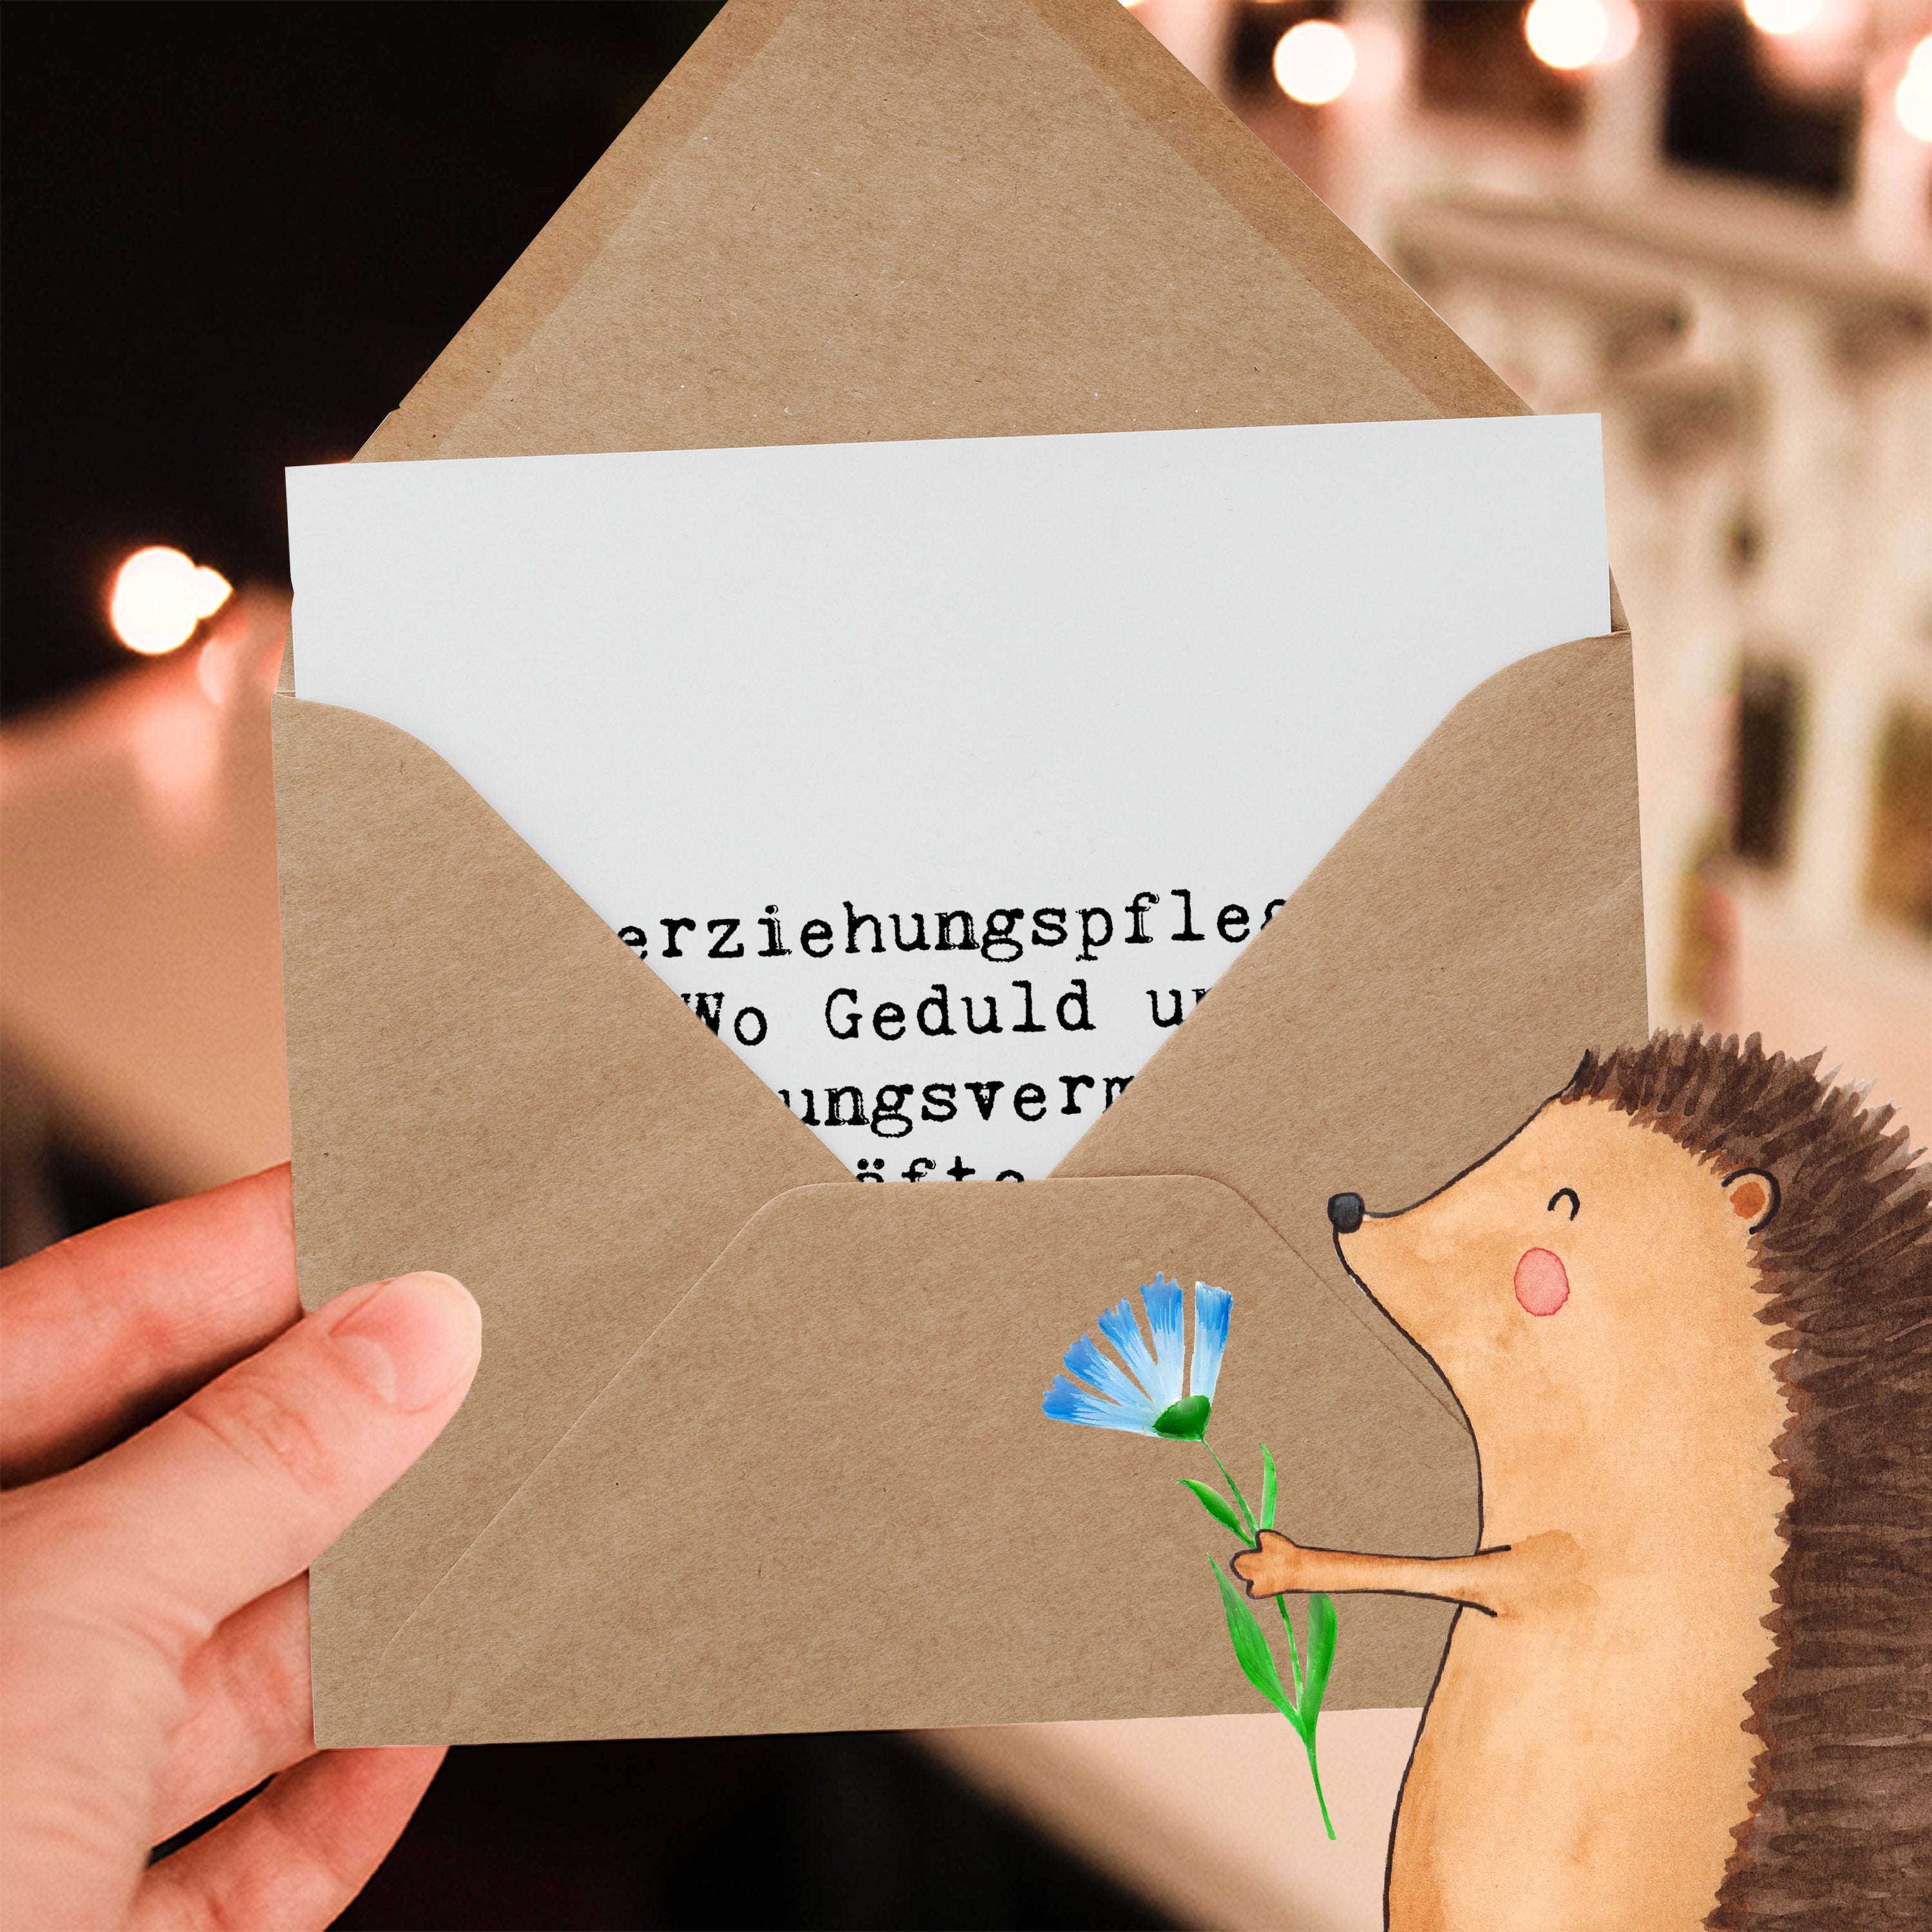 erziehungspfleg
Wo Geduld un
ungsverm
äfte